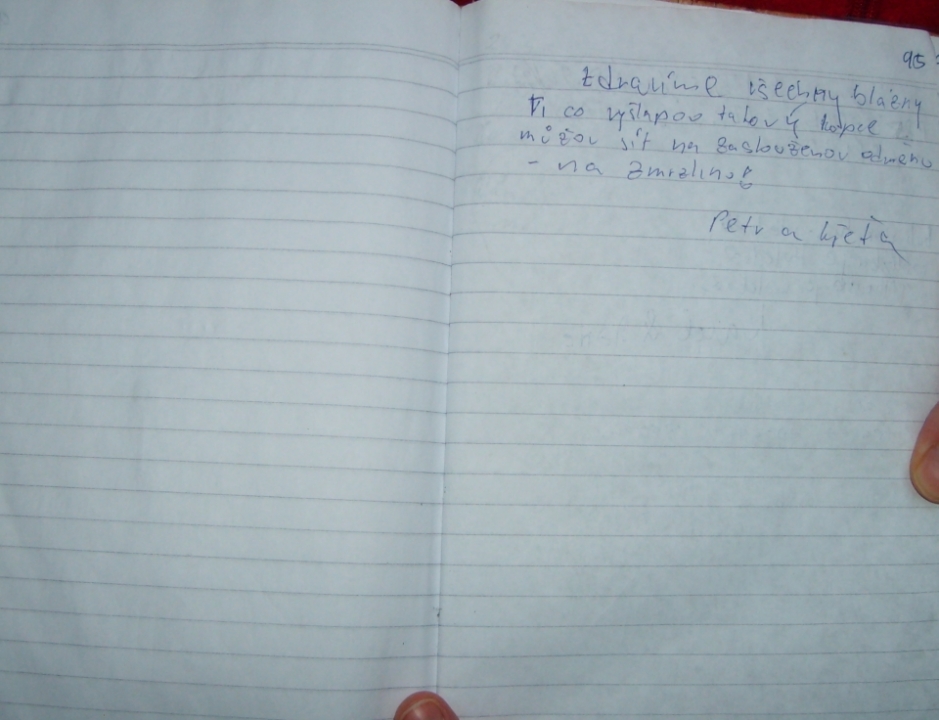 95
Zdravíme všechny blázny
Ti co vyšlapou takový kopec
můžou jít na zaslouženou odměnu
- na zmrzlinu!
Petr a Květa